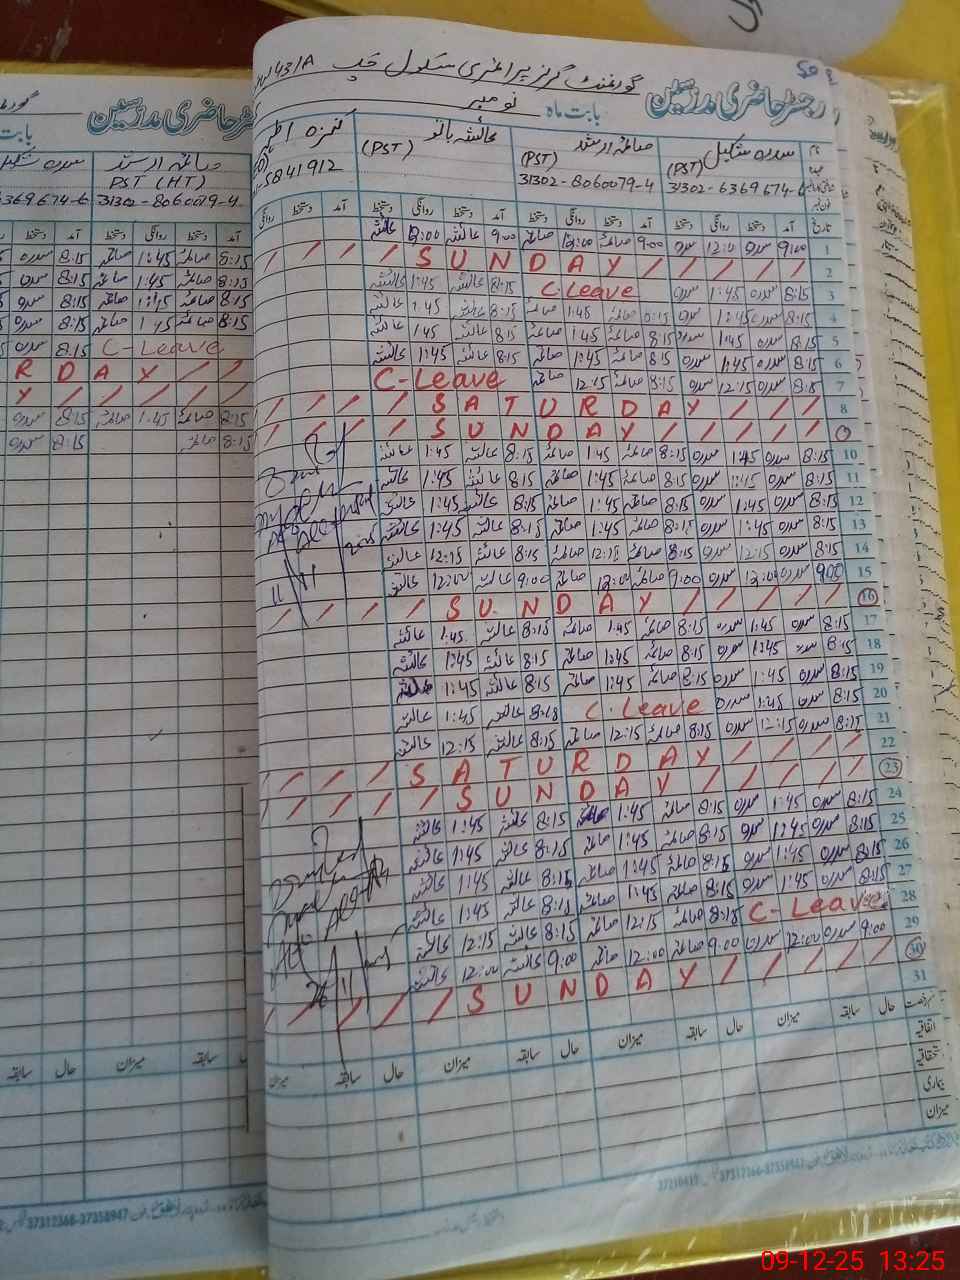 رجسٹر حاضری مدرسین
گورنمنٹ گرلز پرائمری سکول چک 43/A
بابت ماہ نومبر
سدرہ شکیل (PST) 31302-6369674-6
صائمہ ارشد (PST) 31302-8060079-4
عائشہ بانو (PST)
5841912
تاریخ آمد دستخط روانگی دستخط آمد دستخط روانگی دستخط آمد دستخط روانگی دستخط آمد دستخط روانگی
1 9:00 سدرہ 12:00 سدرہ 9:00 صائمہ 12:00 صائمہ 9:00 عائشہ 12:00 عائشہ
2 SUNDAY
3 8:15 سدرہ 1:45 سدرہ C-Leave 8:15 عائشہ 1:45 عائشہ
4 8:15 سدرہ 1:45 سدرہ 8:15 صائمہ 1:45 صائمہ 8:15 عائشہ 1:45 عائشہ
5 8:15 سدرہ 1:45 سدرہ 8:15 صائمہ 1:45 صائمہ 8:15 عائشہ 1:45 عائشہ
6 8:15 سدرہ 1:45 سدرہ 8:15 صائمہ 1:45 صائمہ 8:15 عائشہ 1:45 عائشہ
7 8:15 سدرہ 12:15 سدرہ 8:15 صائمہ 12:15 صائمہ C-Leave
8 SATURDAY
9 SUNDAY
10 8:15 سدرہ 1:45 سدرہ 8:15 صائمہ 1:45 صائمہ 8:15 عائشہ 1:45 عائشہ
11 8:15 سدرہ 1:45 سدرہ 8:15 صائمہ 1:45 صائمہ 8:15 عائشہ 1:45 عائشہ
12 8:15 سدرہ 1:45 سدرہ 8:15 صائمہ 1:45 صائمہ 8:15 عائشہ 1:45 عائشہ
13 8:15 سدرہ 1:45 سدرہ 8:15 صائمہ 1:45 صائمہ 8:15 عائشہ 1:45 عائشہ
14 8:15 سدرہ 12:15 سدرہ 8:15 صائمہ 12:15 صائمہ 8:15 عائشہ 12:15 عائشہ
15 9:00 سدرہ 12:00 سدرہ 9:00 صائمہ 12:00 صائمہ 9:00 عائشہ 12:00 عائشہ
16 SUNDAY
17 8:15 سدرہ 1:45 سدرہ 8:15 صائمہ 1:45 صائمہ 8:15 عائشہ 1:45 عائشہ
18 8:15 سدرہ 1:45 سدرہ 8:15 صائمہ 1:45 صائمہ 8:15 عائشہ 1:45 عائشہ
19 8:15 سدرہ 1:45 سدرہ 8:15 صائمہ 1:45 صائمہ 8:15 عائشہ 1:45 عائشہ
20 8:15 سدرہ 1:45 سدرہ C-Leave 8:15 عائشہ 1:45 عائشہ
21 8:15 سدرہ 12:15 سدرہ 8:15 صائمہ 12:15 صائمہ 8:15 عائشہ 12:15 عائشہ
22 SATURDAY
23 SUNDAY
24 8:15 سدرہ 1:45 سدرہ 8:15 صائمہ 1:45 صائمہ 8:15 عائشہ 1:45 عائشہ
25 8:15 سدرہ 1:45 سدرہ 8:15 صائمہ 1:45 صائمہ 8:15 عائشہ 1:45 عائشہ
26 8:15 سدرہ 1:45 سدرہ 8:15 صائمہ 1:45 صائمہ 8:15 عائشہ 1:45 عائشہ
27 8:15 سدرہ 1:45 سدرہ 8:15 صائمہ 1:45 صائمہ 8:15 عائشہ 1:45 عائشہ
28 C-Leave 8:15 صائمہ 12:15 صائمہ 8:15 عائشہ 12:15 عائشہ
29 9:00 سدرہ 12:00 سدرہ 9:00 صائمہ 12:00 صائمہ 9:00 عائشہ 12:00 عائشہ
30 SUNDAY
31
حال سابقہ میزان حال سابقہ میزان حال سابقہ میزان حال سابقہ میزان
اتفاقیہ
استحقاقیہ
بیماری
میزان
37312366-37358947
رجسٹر حاضری مدرسین
صائمہ ارشد
سدرہ شکیل
PST (HT)
31302-8060079-4
6369674-6
آمد دستخط روانگی دستخط آمد دستخط
8:15 صائمہ 1:45 صائمہ 8:15 سدرہ
8:15 صائمہ 1:45 صائمہ 8:15 سدرہ
8:15 صائمہ 1:45 صائمہ 8:15 سدرہ
8:15 صائمہ 1:45 صائمہ 8:15 سدرہ
C-Leave 8:15 سدرہ
RDAY
Y
8:15 صائمہ 1:45 صائمہ 8:15 سدرہ
8:15 صائمہ 8:15 سدرہ
سابقہ میزان حال سابقہ
37312366-37358947
09-12-25 13:25